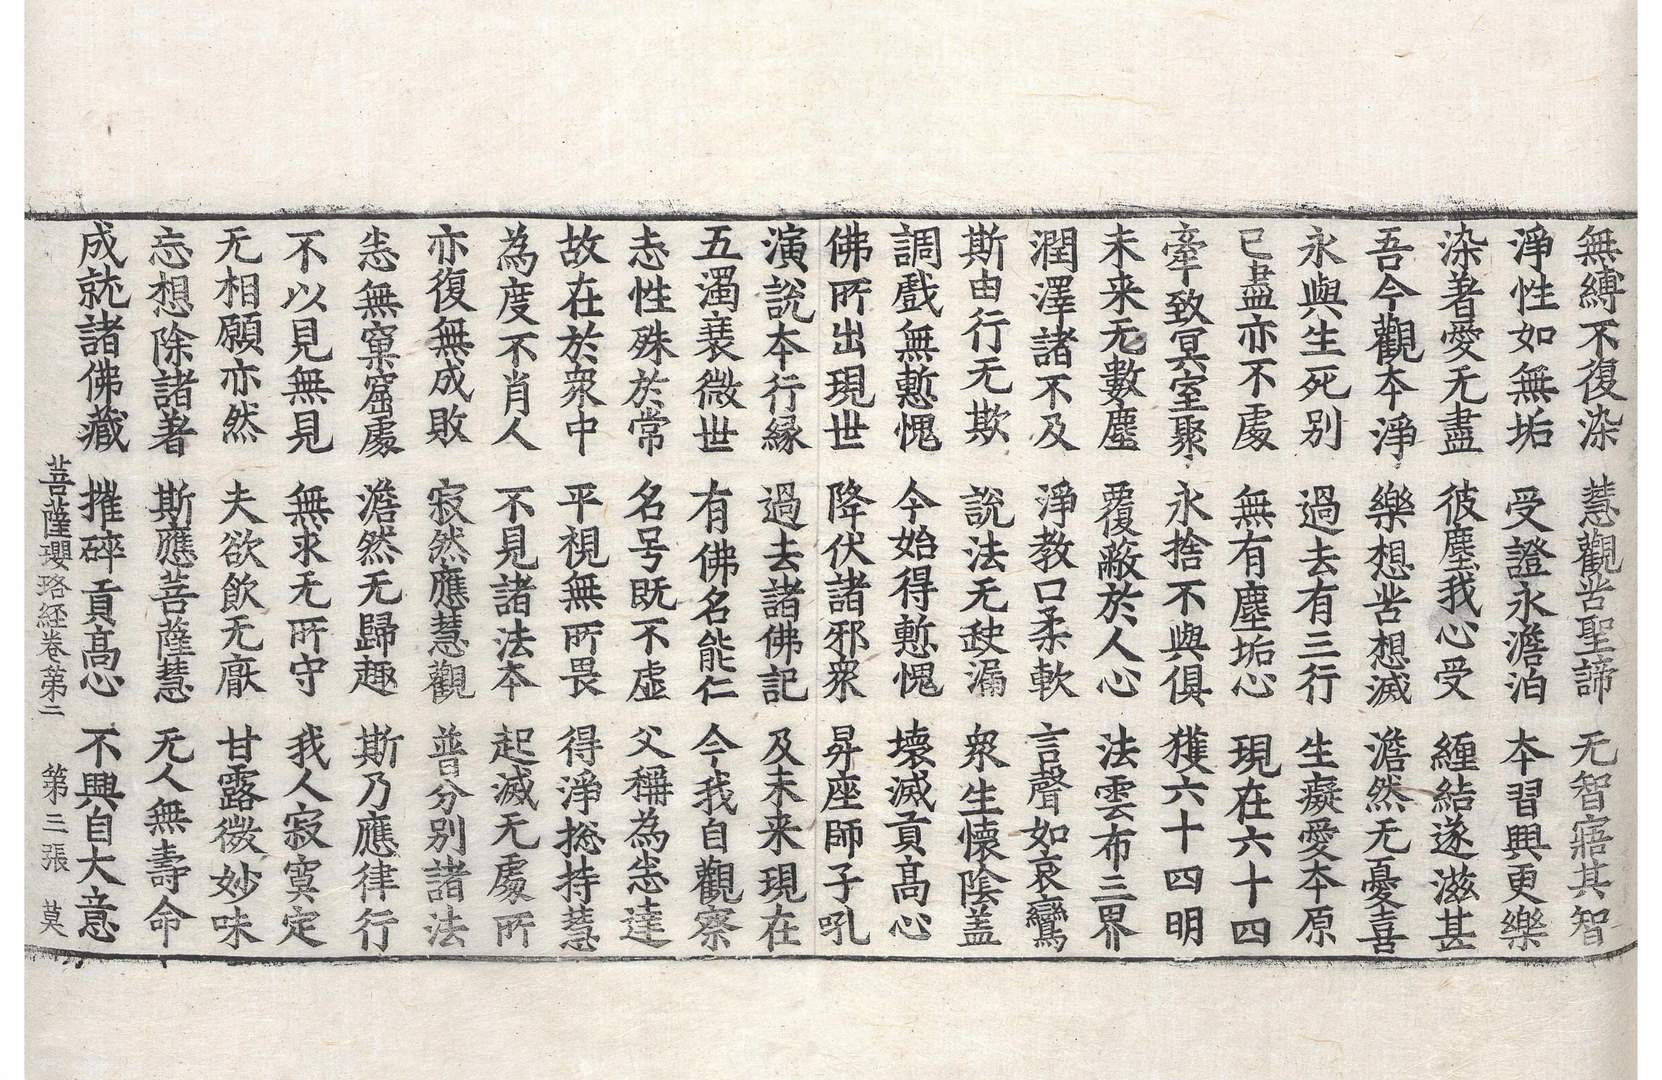 無縛不復染 慧觀苦聖諦 无智寤其智
淨性如無垢 受證永澹泊 本習興更樂
染著愛无盡 彼塵我心受 纏結遂滋甚
吾今觀本淨 樂想苦想滅 澹然无憂喜
永與生死別 過去有三行 生癡愛本原
已盡亦不處 無有塵垢心 現在六十四
牽致冥室聚 永捨不與俱 獲六十四明
未来无數塵 覆蔽於人心 法雲布三界
潤澤諸不及 淨教口柔軟 言聲如哀鸞
斯由行无欺 說法无缺漏 衆生懷陰蓋
調戲無慙愧 今始得慙愧 壞滅貢高心
佛所出現世 降伏諸邪衆 昇座師子吼
演說本行縁 過去諸佛記 及未来現在
五濁衰微世 有佛名能仁 今我自觀察
恚性殊於常 名号旣不虛 父稱為恚達
故在於衆中 平視無所畏 得淨揔持慧
為度不肖人 不見諸法本 起滅无處所
亦復無成敗 寂然應慧觀 普分別諸法
恚無窠窟處 澹然无歸趣 斯乃應律行
不以見無見 無求无所守 我人寂寞定
无相願亦然 夫欲飲无厭 甘露微妙味
忘想除諸著 斯應菩薩慧 无人無壽命
成就諸佛藏 摧碎貢高心 不興自大意
菩薩瓔珞経卷第二 第三張 莫